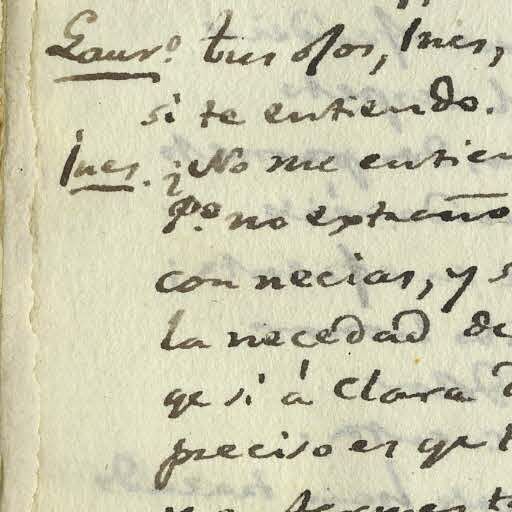 Laurº. tus ojos, Ines,
si te entiendo.
Ines. ¿No me entien
Pº no extraño
con necias, y s
la necedad de
qe si á Clara
preciso es qe